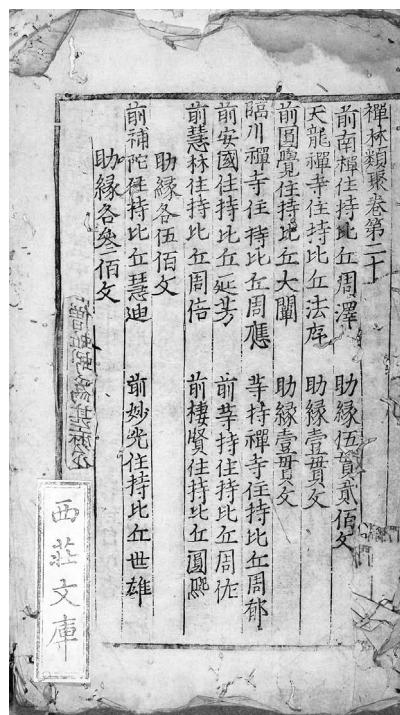 禪林類聚卷第二十
前南禪住持比丘周澤　助縁伍貫貳佰文
天龍禪寺住持比丘法序　助縁壹貫文
前圓覺住持比丘大闡　助縁壹貫文
臨川禪寺住持比丘周應　等持禪寺住持比丘周郁
前安國住持比丘延芳　前等持住持比丘周佐
前慧林住持比丘周信　前棲賢住持比丘圓熈
助縁各伍佰文
前補陀住持比丘慧迪　前妙光住持比丘世雄
助縁各叄佰文
西莊文庫